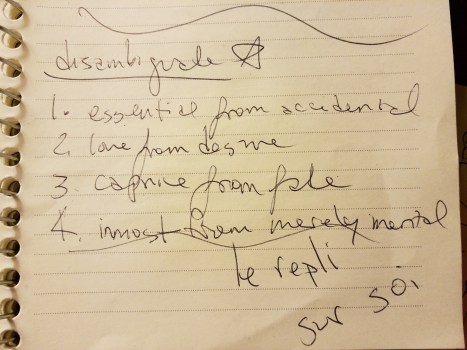 disambiguate
1. essential from accidental
2. love from desire
3. caprice from fate
4. inmost from merely mental
le repli
sur soi